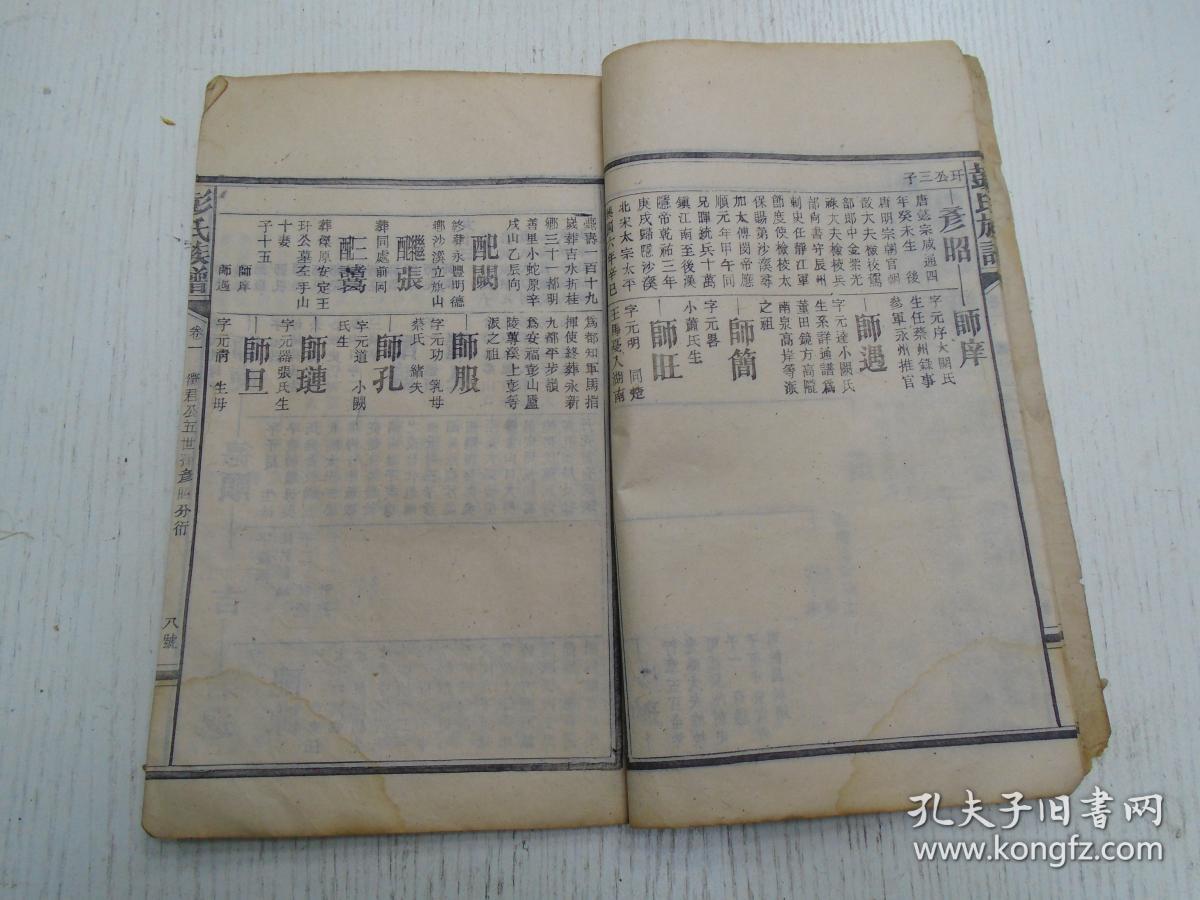 玕公三子
彥昭
唐懿宗咸通四
年癸未生 後
唐明宗朝官朝
散大夫檢校駕
部郎中金紫光
祿大夫檢校兵
部尚書守辰州
刺史任靜江軍
節度使檢校太
保賜第沙溪尋
加太傅閔帝應
順元年甲午同
兄暉統兵十萬
鎮江南至後漢
隱帝乾祐三年
庚戌歸隱沙溪
北宋太宗太平
興國六年辛巳
師庠
字元序大闕氏
生任蔡州錄事
叅軍永州推官
師遇
字元達小闕氏
生系詳通譜爲
董田鏡方高隴
南泉高岸等派
之祖
師簡
字元畧
小蕭氏生
師旺
字元明 同楚
王馬 入湖南
壽一百十九
歲葬吉水折桂
鄉三十一都明
善里小蛇原辛
戌山乙辰向
配闕
終葬永豐明德
鄉沙溪立旗山
繼張
葬同處前同
二蕭
葬 原安定王
玕公墓左手山
十妻
子十五
師庠
師遇
爲都知軍馬指
揮使終葬永新
九都平 嶺
爲安福彭山廬
陵尊溪上彭等
派之祖
師服
字元功 乳母
蔡氏 緒失
師孔
字元道 小闕
氏生
師璉
字元器張氏生
師旦
字元 生母
彭氏族譜
卷一
徵君公五世 彥昭分衍
八號
孔夫子旧书网
www.kongfz.com